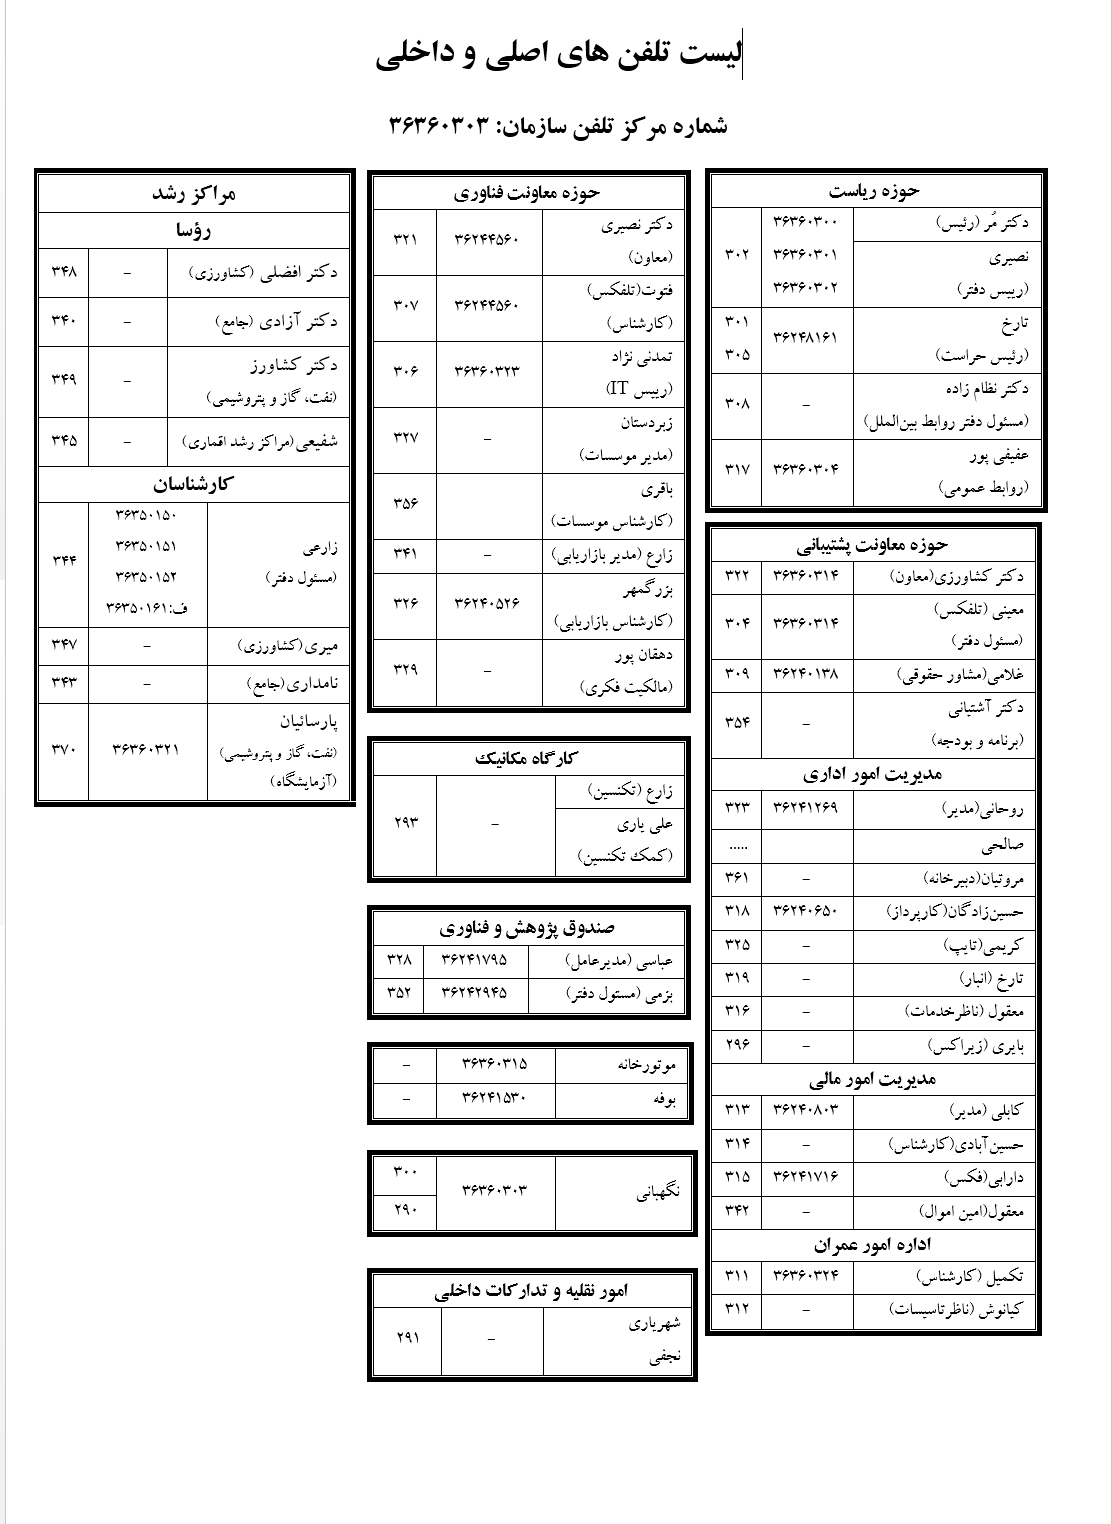 لیست تلفن های اصلی و داخلی
شماره مرکز تلفن سازمان: ۳۶۳۶۰۳۰۳
حوزه ریاست
دکتر مُر (رئیس) ۳۶۳۶۰۳۰۰
نصیری ۳۶۳۶۰۳۰۱ ۳۰۲
(رییس دفتر) ۳۶۳۶۰۳۰۲
تارخ ۳۶۲۴۸۱۶۱ ۳۰۱
(رئیس حراست) ۳۰۵
دکتر نظام زاده – ۳۰۸
(مسئول دفتر روابط بین‌الملل)
عفیفی پور ۳۶۳۶۰۳۰۴ ۳۱۷
(روابط عمومی)
حوزه معاونت پشتیبانی
دکتر کشاورزی(معاون) ۳۶۳۶۰۳۱۴ ۳۲۲
معینی (تلفکس) ۳۶۳۶۰۳۱۴ ۳۰۴
(مسئول دفتر)
غلامی(مشاور حقوقی) ۳۶۲۴۰۱۳۸ ۳۰۹
دکتر آشتیانی – ۳۵۴
(برنامه و بودجه)
مدیریت امور اداری
روحانی(مدیر) ۳۶۲۴۱۲۶۹ ۳۲۳
صالحی .....
مروتیان(دبیرخانه) – ۳۶۱
حسین‌زادگان(کارپرداز) ۳۶۲۴۰۶۵۰ ۳۱۸
کریمی(تایپ) – ۳۲۵
تارخ (انبار) – ۳۱۹
معقول (ناظرخدمات) – ۳۱۶
بایری (زیراکس) – ۲۹۶
مدیریت امور مالی
کابلی (مدیر) ۳۶۲۴۰۸۰۳ ۳۱۳
حسین‌آبادی(کارشناس) – ۳۱۴
دارابی(فکس) ۳۶۲۴۱۷۱۶ ۳۱۵
معقول(امین اموال) – ۳۴۲
اداره امور عمران
تکمیل (کارشناس) ۳۶۳۶۰۳۲۴ ۳۱۱
کیانوش (ناظرتاسیسات) – ۳۱۲
حوزه معاونت فناوری
دکتر نصیری ۳۶۲۴۴۵۶۰ ۳۲۱
(معاون)
فتوت(تلفکس) ۳۶۲۴۴۵۶۰ ۳۰۷
(کارشناس)
تمدنی نژاد ۳۶۳۶۰۳۲۳ ۳۰۶
(رییس IT)
زبردستان – ۳۲۷
(مدیر موسسات)
باقری ۳۵۶
(کارشناس موسسات)
زارع (مدیر بازاریابی) – ۳۴۱
بزرگمهر ۳۶۲۴۰۵۲۶ ۳۲۶
(کارشناس بازاریابی)
دهقان پور – ۳۲۹
(مالکیت فکری)
کارگاه مکانیک
زارع (تکنسین)
علی یاری – ۲۹۳
(کمک تکنسین)
صندوق پژوهش و فناوری
عباسی (مدیرعامل) ۳۶۲۴۱۷۹۵ ۳۲۸
بزمی (مسئول دفتر) ۳۶۲۴۲۹۴۵ ۳۵۲
موتورخانه ۳۶۳۶۰۳۱۵ –
بوفه ۳۶۲۴۱۵۳۰ –
نگهبانی ۳۶۳۶۰۳۰۳ ۳۰۰
۲۹۰
امور نقلیه و تدارکات داخلی
شهریاری – ۲۹۱
نجفی
مراکز رشد
رؤسا
دکتر افضلی (کشاورزی) – ۳۴۸
دکتر آزادی (جامع) – ۳۴۰
دکتر کشاورز – ۳۴۹
(نفت، گاز و پتروشیمی)
شفیعی(مراکز رشد اقماری) – ۳۴۵
کارشناسان
۳۶۳۵۰۱۵۰
زارعی ۳۶۳۵۰۱۵۱ ۳۴۴
(مسئول دفتر) ۳۶۳۵۰۱۵۲
ف:۳۶۳۵۰۱۶۱
میری(کشاورزی) – ۳۴۷
نامداری(جامع) – ۳۴۳
پارسائیان ۳۶۳۶۰۳۲۱ ۳۷۰
(نفت، گاز و پتروشیمی)
(آزمایشگاه)